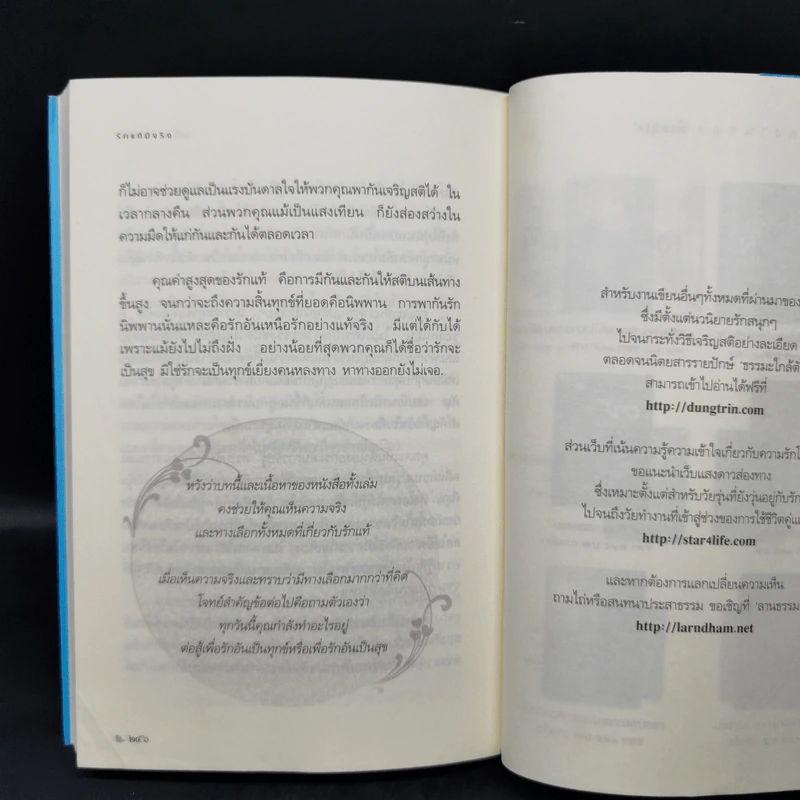 รักแท้มีจริง
ก็ไม่อาจช่วยดูแลเป็นแรงบันดาลใจให้พวกคุณพากันเจริญสติได้ ใน
เวลากลางคืน ส่วนพวกคุณแม้เป็นแสงเทียน ก็ยังส่องสว่างใน
ความมืดให้แก่กันและกันได้ตลอดเวลา
คุณค่าสูงสุดของรักแท้ คือการมีกันและกันให้สติบนเส้นทาง
ขึ้นสูง จนกว่าจะถึงความสิ้นทุกข์ที่ยอดคือนิพพาน การพากันรัก
นิพพานนั่นแหละคือรักอันเหนือรักอย่างแท้จริง มีแต่ได้กับได้
เพราะแม้ยังไปไม่ถึงฝั่ง อย่างน้อยที่สุดพวกคุณก็ได้ชื่อว่ารักจะ
เป็นสุข มิใช่รักจะเป็นทุกข์เยี่ยงคนหลงทาง หาทางออกยังไม่เจอ.
หวังว่าบทนี้และเนื้อหาของหนังสือทั้งเล่ม
คงช่วยให้คุณเห็นความจริง
และทางเลือกทั้งหมดที่เกี่ยวกับรักแท้
เมื่อเห็นความจริงและทราบว่ามีทางเลือกมากกว่าที่คิด
โจทย์สำคัญข้อต่อไปคือถามตัวเองว่า
ทุกวันนี้คุณกำลังทำอะไรอยู่
ต่อสู้เพื่อรักอันเป็นทุกข์หรือเพื่อรักอันเป็นสุข
๒๔๖
สำหรับงานเขียนอื่นๆทั้งหมดที่ผ่านมาของ
ซึ่งมีตั้งแต่นวนิยายรักสนุกๆ
ไปจนกระทั่งวิธีเจริญสติอย่างละเอียด
ตลอดจนนิตยสารรายปักษ์ 'ธรรมะใกล้ตั
สามารถเข้าไปอ่านได้ฟรีที่
http://dungtrin.com
ส่วนเว็บที่เน้นความรู้ความเข้าใจเกี่ยวกับความรักโ
ขอแนะนำเว็บแสงดาวส่องทาง
ซึ่งเหมาะตั้งแต่สำหรับวัยรุ่นที่ยังวุ่นอยู่กับรัก
ไปจนถึงวัยทำงานที่เข้าสู่ช่วงของการใช้ชีวิตคู่แ
http://star4life.com
และหากต้องการแลกเปลี่ยนความเห็น
ถามไถ่หรือสนทนาประสาธรรม ขอเชิญที่ 'ลานธรรม
http://larndham.net